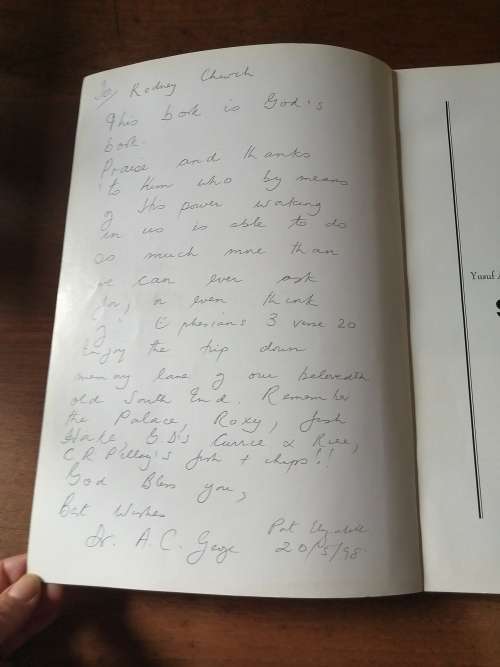 To/ Rodney Church
This book is God's
book.
Praise and thanks
to Him who by means
of His power working
in us is able to do
so much more than
we can ever ask
for, or even think
of. Ephesians 3 verse 20
Enjoy the trip down
memory lane of our beloved
old South End. Remember
the Palace, Roxy, fish
Hake, Currie & Rice,
C R Pilley's fish + chips!!
God Bless you,
Best Wishes
Dr. A. C. George
20/5/98
Yusuf